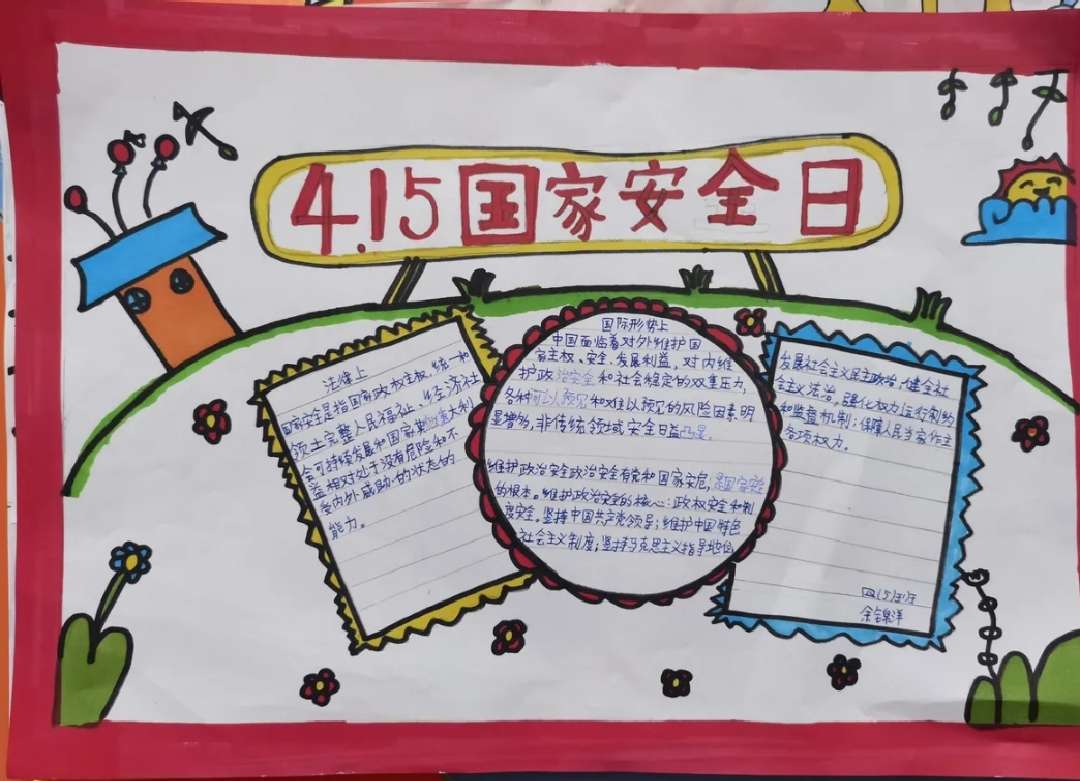 4.15国家安全日
法律上
国家安全是指国家政权主权、统一和
领土完整人民福祉、经济社
会可持续发展和国家其他重大利
益相对处于没有危险和不
受内外威胁的状态的
能力。
国际形势上
中国面临着对外维护国
家主权、安全、发展利益,对内维
护政治安全和社会稳定的双重压力,
各种可以预见和难以预见的风险因素明
显增多,非传统领域安全日益凸显。
维护政治安全政治安全有党和国家安危,是国家安全
的根本。维护政治安全的核心:政权安全和制
度安全。坚持中国共产党领导;维护中国特色
社会主义制度;坚持马克思主义指导地位
发展社会主义民主政治,健全社
会主义法治,强化权力运行制约
和监督机制;保障人民当家作主
各项权力。
四(5)班
余锦洋